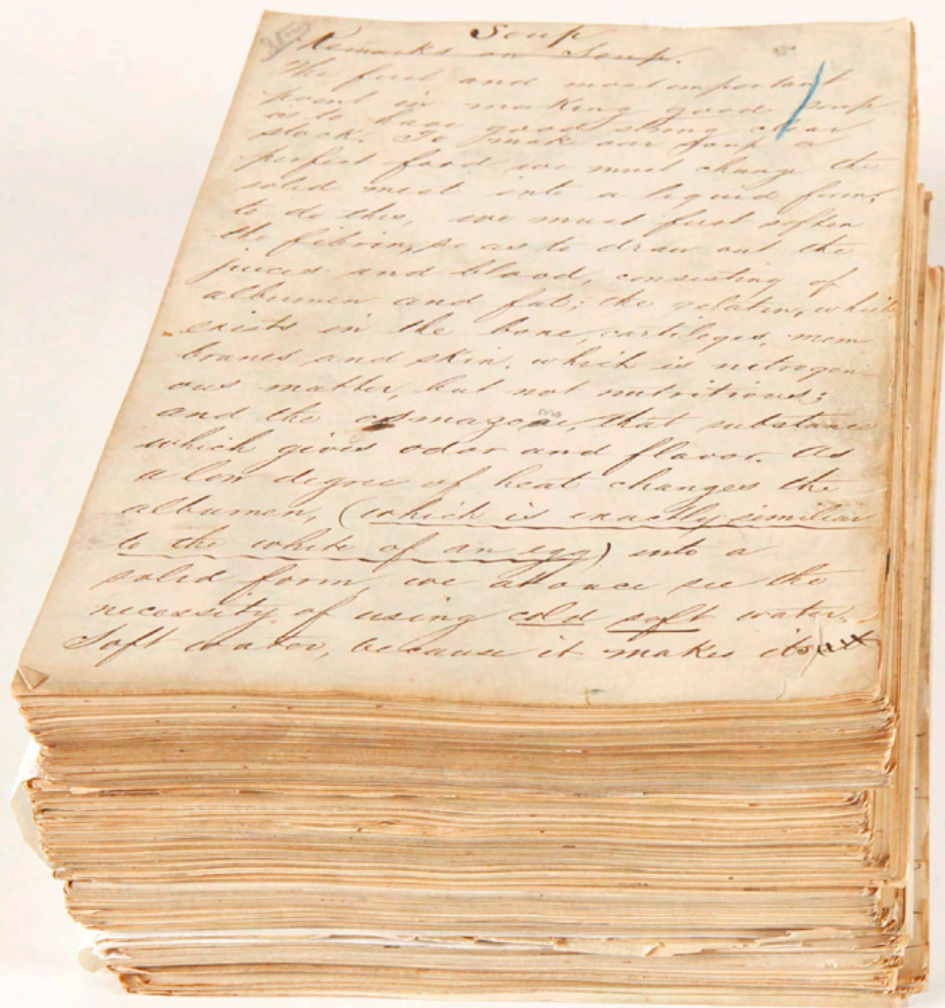 Soup
Remarks on Soup.
The first and most important
point in making good soup
is to have good strong clear
stock. To make our soup a
perfect food we must change the
solid meat into a liquid form;
to do this, we must first soften
the fibrin, so as to draw out the
juices and blood, consisting of
albumen and fat; the gelatin, which
exists in the bone, cartilages, mem
branes and skin, which is nitrogen-
ous matter, but not nutritious;
and the osmazome, that substance
which gives odor and flavor. As
a low degree of heat changes the
albumen, (which is exactly similar
to the white of an egg) into a
solid form we at once see the
necessity of using cold soft water.
Soft water, because it makes its